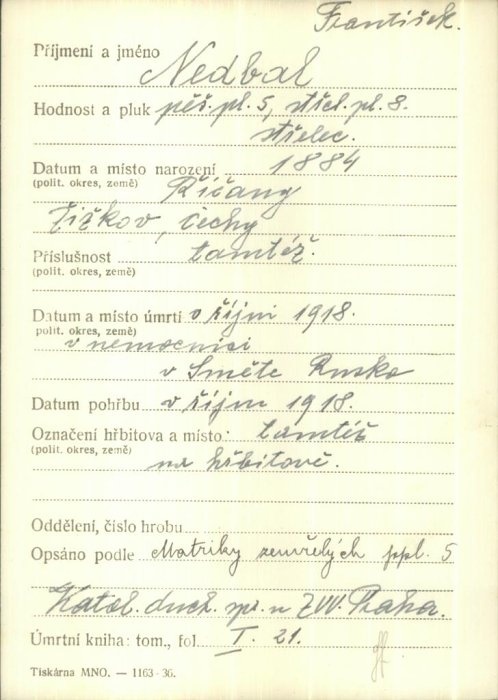 František.
Příjmení a jméno Nedbal
Hodnost a pluk pěš. pl. 5, střel. pl. 8.
střelec.
Datum a místo narození 1884
(polit. okres, země) Říčany
Žižkov, Čechy
Příslušnost tamtéž.
(polit. okres, země)
Datum a místo úmrtí v říjnu 1918.
(polit. okres, země)
v nemocnici
v Směte Rusko
Datum pohřbu v říjnu 1918.
Označení hřbitova a místo: tamtéž
(polit. okres, země)
na hřbitově.
Oddělení, číslo hrobu
Opsáno podle Matriky zemřelých ppl. 5
Katol. duch. spr. u ZVV. Praha.
Úmrtní kniha: tom., fol. I. 21.
Tiskárna MNO. — 1163-36.